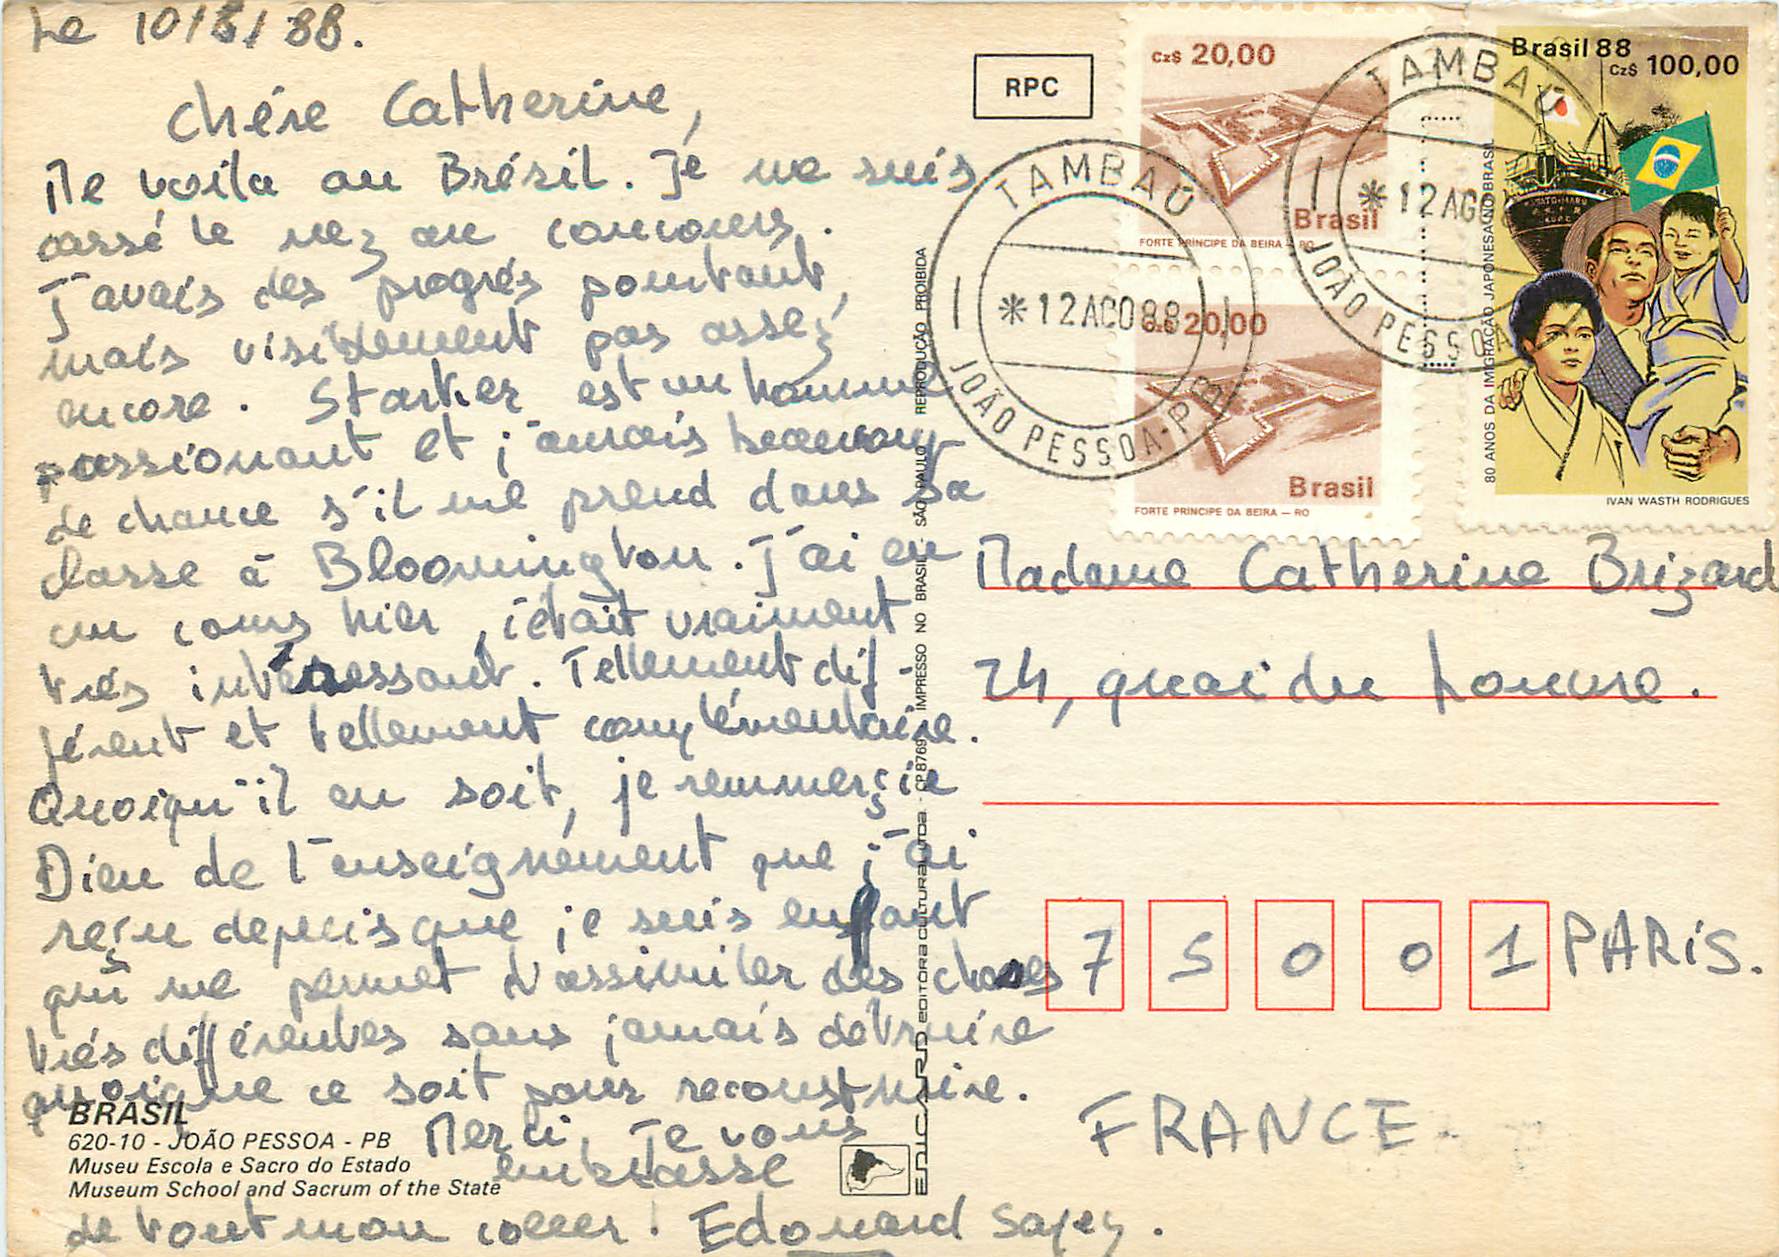 Le 10/8/88.
Chére Catherine,
Me voila au Brésil. Je me suis
cassé le nez au concours.
J'avais des progrés pourtant,
mais visiblement pas assez
encore. Starker est un homme
passionant et j'aurais beaucoup
de chance s'il me prend dans sa
classe à Bloomington. J'ai eu
un cours hier, c'était vraiment
trés intéressant. Tellement dif-
férent et tellement complémentaire.
Quoiqu'il en soit, je remmerçie
Dieu de l'enseignement que j'ai
reçu depuis que je suis enfant
qui me permet d'assimiler des choses
trés différentes sans jamais détruire
quoique ce soit pour reconstruire.
Merci, Je vous
embrasse
de tout mon coeur! Edouard Sapey.
BRASIL
620-10 - JOÃO PESSOA - PB
Museu Escola e Sacro do Estado
Museum School and Sacrum of the State
EDICARD EDITORA CULTURAL LTDA. - CP 8769 IMPRESSO NO BRASIL - SÃO PAULO REPRODUÇÃO PROIBIDA
RPC
Cz$ 20,00
Brasil
FORTE PRÍNCIPE DA BEIRA – RO
Cz$ 20,00
Brasil
FORTE PRÍNCIPE DA BEIRA – RO
Brasil 88
Cz$ 100,00
80 ANOS DA IMIGRAÇÃO JAPONESA NO BRASIL
IVAN WASTH RODRIGUES
TAMBAÚ
12 AGO 88
JOÃO PESSOA-PB
TAMBAÚ
12 AGO 8
JOÃO PESSOA
Madame Catherine Brizard
24, quai du Louvre.
75001 PARIS.
FRANCE.